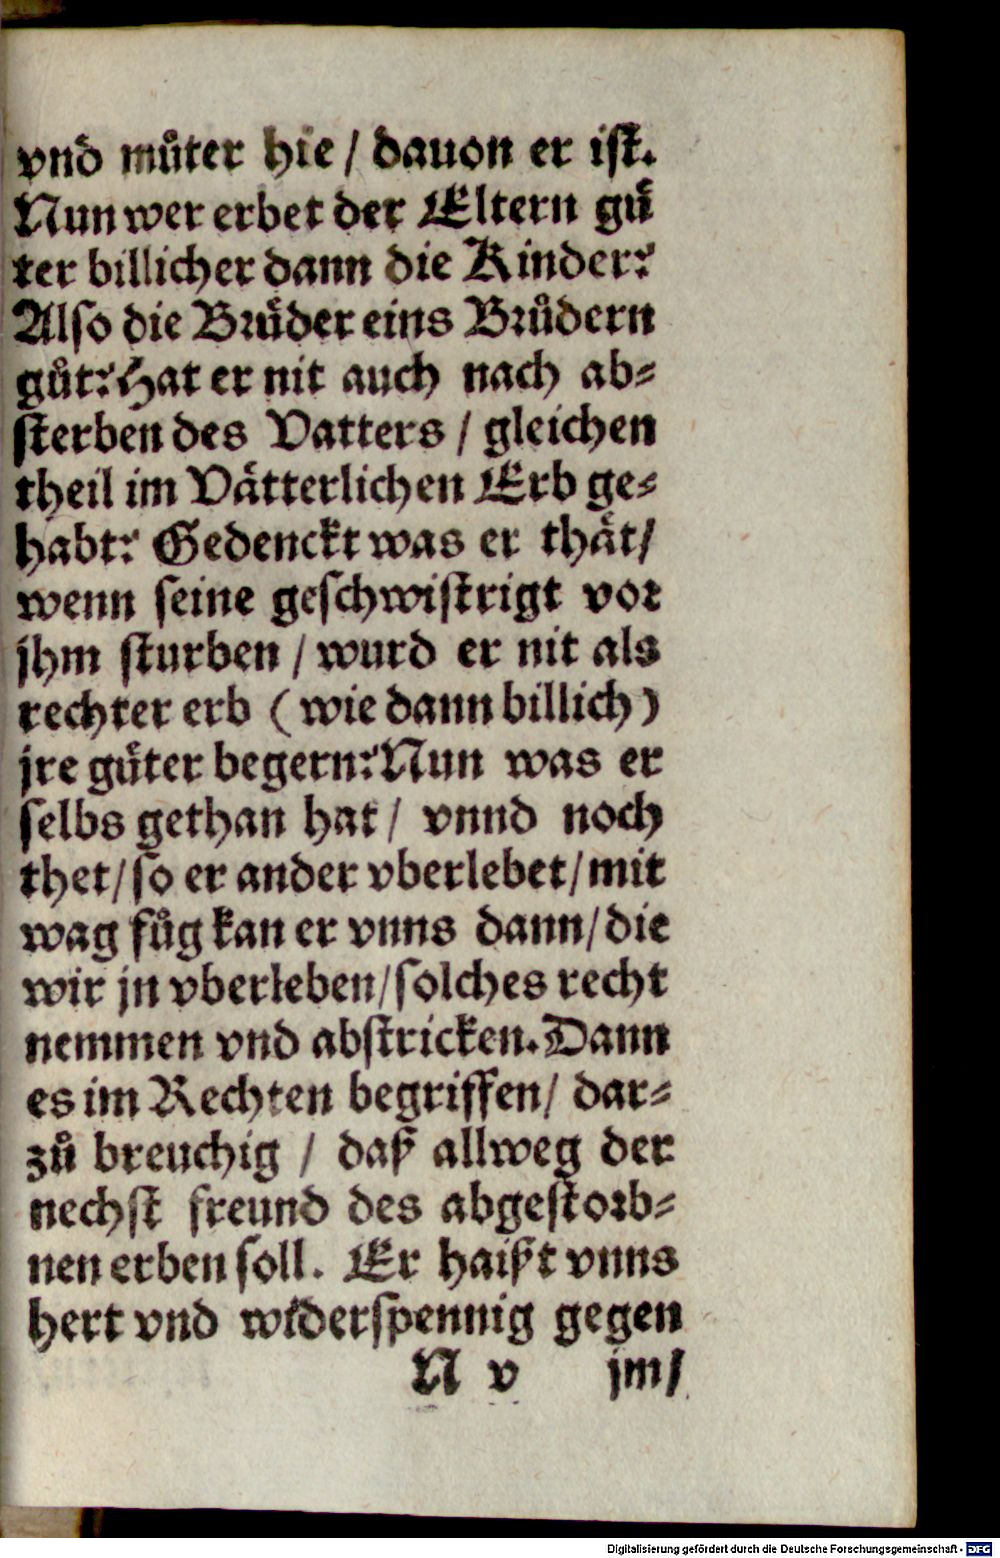 vnd můter hie / dauon er ist.
Nun wer erbet der Eltern guͤ
ter billicher dann die Kinder?
Also die Bruͤder eins Brůdern
gůt? Hat er nit auch nach ab⸗
sterben des Vatters / gleichen
theil im Vaͤtterlichen Erb ge⸗
habt? Gedenckt was er thaͤt /
wenn seine geschwistrigt vor
jhm sturben / wurd er nit als
rechter erb ( wie dann billich )
jre guͤter begern? Nun was er
selbs gethan hat / vnnd noch
thet / so er ander vberlebet / mit
wag fůg kan er vnns dann / die
wir jn vberleben / solches recht
nemmen vnd abstricken. Dann
es im Rechten begriffen / dar⸗
zů breuchig / daß allweg der
nechst freund des abgestorb⸗
nen erben soll. Er haißt vnns
hert vnd widerspennig gegen
N v jm /
Digitalisierung gefördert durch die Deutsche Forschungsgemeinschaft - DFG